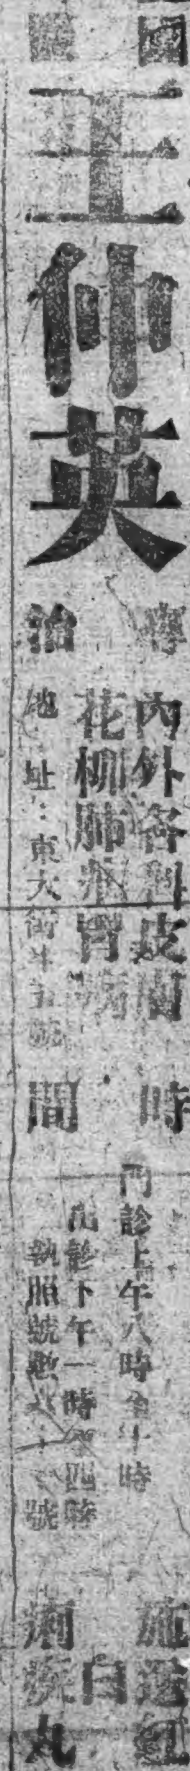 國醫
王仲英
專治
內外各科皮膚
花柳肺癆胃病
地址：東大街
時間
門診上午八時至十時
出診下午一時至四時
執照號數
施送紅
白
痢疾丸